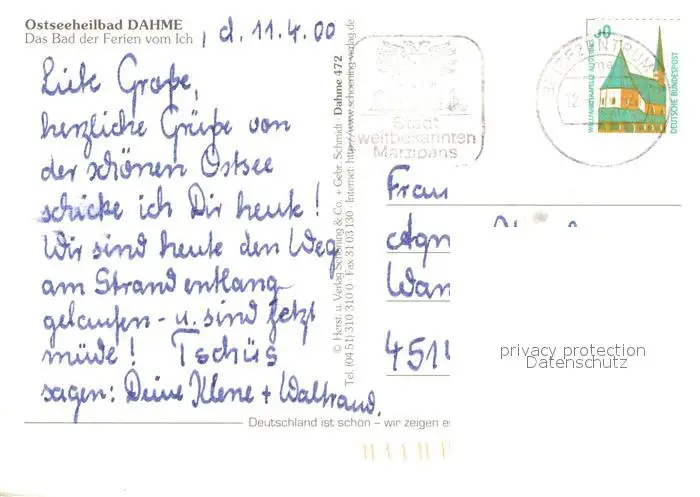 Ostseeheilbad DAHME
Das Bad der Ferien vom Ich
, d. 11.4.00
Liebe Große,
herzliche Grüße von
der schönen Ostsee
schicke ich Dir heute!
Wir sind heute den Weg
am Strand entlang
gelaufen - u. sind jetzt
müde! Tschüs
sagen: Deine Klene + Waltraud.
© Herst. u. Verlag Schöning & Co. + Gebr. Schmidt · Dahme 472
Tel. (04 51) 310 310 0 · Fax 31 03 130 · Internet: http://www.schoening-verlag.de
Deutschland ist schön – wir zeigen e
Stadt
weltbekannten
Marzipans
BRIEFZENTRUM
12
WALLFAHRTSKAPELLE ALTÖTTING
DEUTSCHE BUNDESPOST
Frau
Agn
Wan
451
privacy protection
Datenschutz